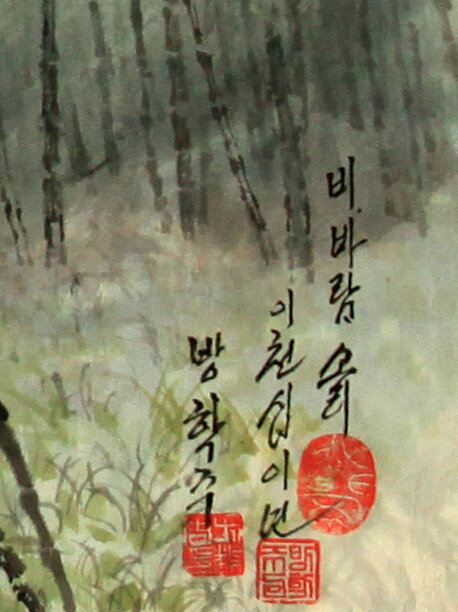 비.바람 소리
이천십이년
방학주